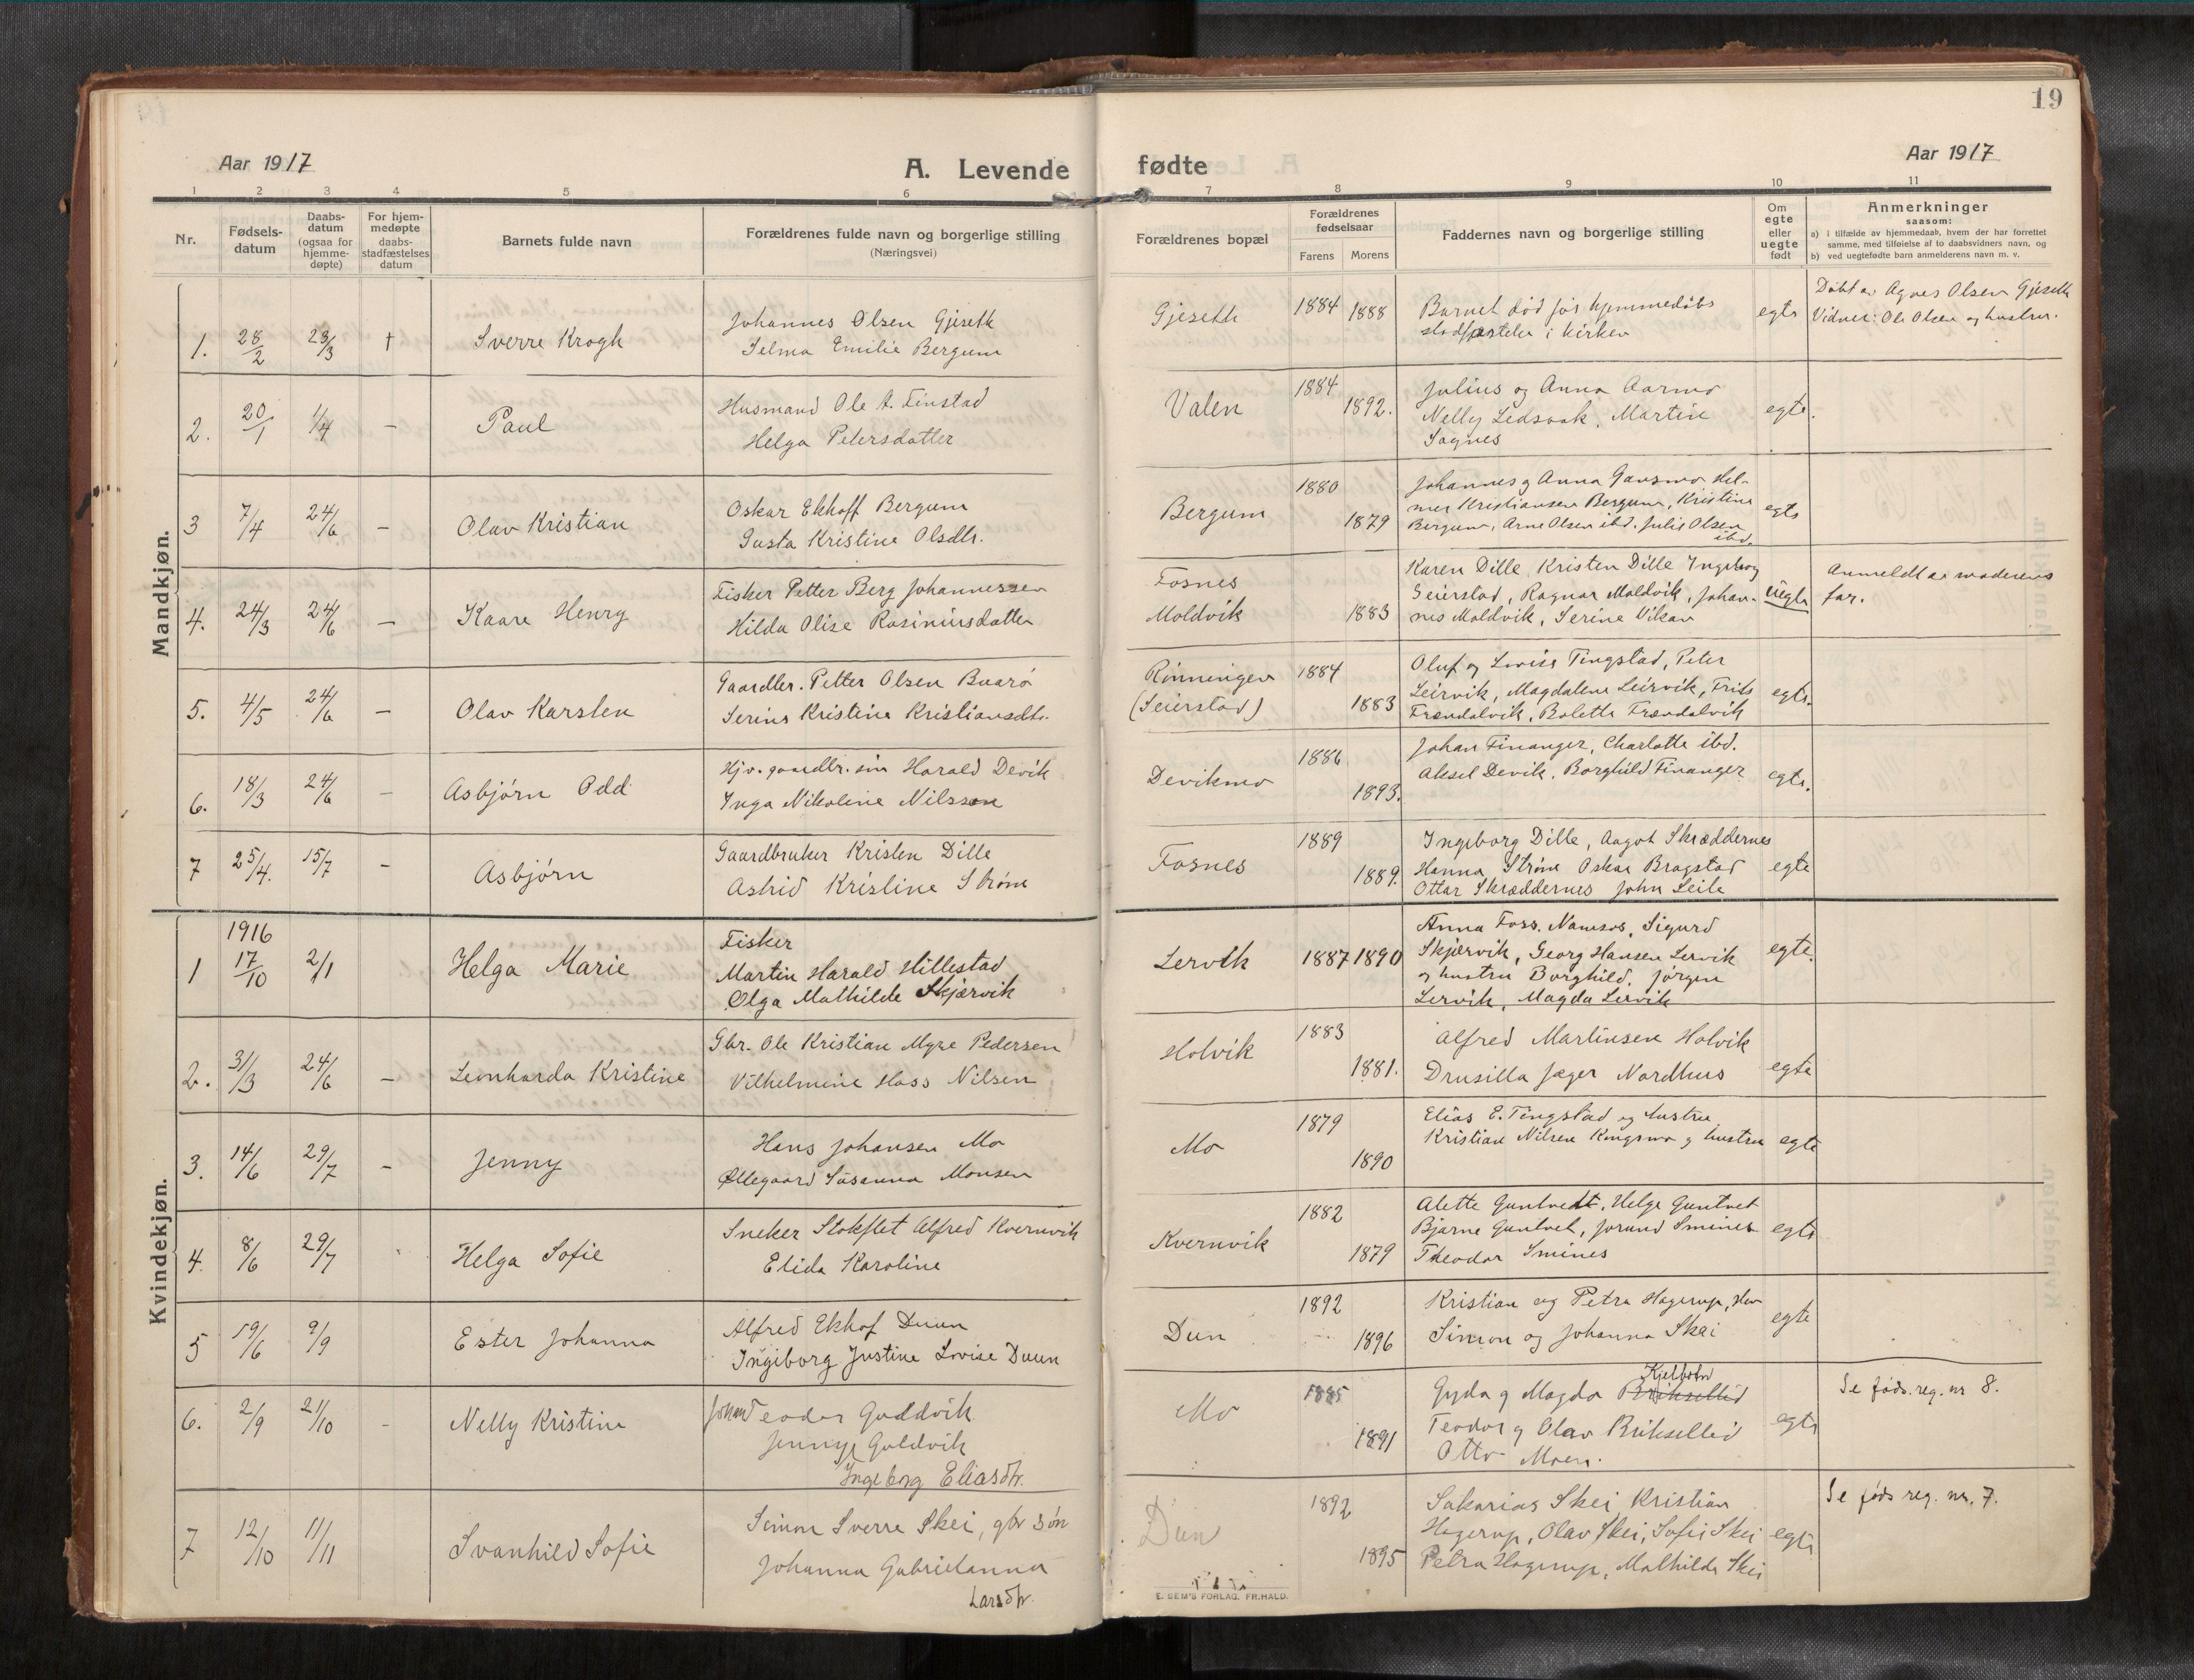 19
Aar 1917
A. Levende
fødte
Aar 1917
1 2 3 4 5 6 7 8 9 10 11
Nr.
Fødsels-
datum
Daabs-
datum
(ogsaa for
hjemme-
døpte)
For hjem-
medøpte
daabs-
stadfæstelses
datum
Barnets fulde navn
Forældrenes fulde navn og borgerlige stilling
(Næringsvei)
Forældrenes bopæl
Forældrenes
fødselsaar
Farens Morens
Faddernes navn og borgerlige stilling
Om
egte
eller
uegte
født
Anmerkninger
saasom:
a) i tilfælde av hjemmedaab, hvem der har forrettet
samme, med tilføielse af to daabsvidners navn, og
b) ved uegtefødte barn anmelderens navn m. v.
Mandkjøn.
1. 28/2 23/3 † Sverre Krogh
Johannes Olsen Gjeseth
Selma Emilie Bergum
Gjeseth 1884 1888
Barnet död för hjemmedöbs
stadfæstelse i kirken
egte
Döbt av Agnes Olsen Gjeseth
Vidner: Ole Olsen og hustru.
2. 20/1 1/4 – Paul
Husmand Ole A. Finstad
Helga Petersdatter
Valen 1884 1892.
Julius og Anna Aarmo
Nelly Ledsaak, Martin
Sagnes
egte.
3 7/4 24/6 – Olav Kristian
Oskar Ekhoff Bergum
Gusta Kristine Olsdtr.
Bergum 1880 1879
Johannes og Anna Gansmo Hel-
mer Kristiansen Bergum, Kristine
Bergum, Arne Olsen ibd. Julie Olsen
ibd.
egte
4. 24/3 24/6 – Kaare Henry
Fisker Petter Berg Johannessen
Hilda Olise Rasiniusdatter
Fosnes
Moldvik
1883
Karen Dille, Kristen Dille Ingeborg
Seierstad, Ragnar Moldvik, Johan-
nes Moldvik, Serine Vikan
uegte
Anmeldt av moderens
far.
5. 4/5 24/6 – Olav Karsten
Gaardbr. Petter Olsen Buarö
Serine Kristine Kristiansdtr.
Rönningen
(Seierstad)
1884 1883
Oluf og Lovise Tingstad, Peter
Leirvik, Magdalene Leirvik, Frits
Frændalvik, Bolette Frændalvik
egte.
6. 18/3 24/6 – Asbjörn Odd
Hjv. gaardbr. sön Harald Devik
Inga Nikoline Nilssen
Devikmo 1886 1893.
Johan Finanger, Charlotte ibd.
Aksel Devik, Borghild Finanger
egte.
7 25/4. 15/7 – Asbjörn
Gaardbruker Kristen Dille
Astrid Kristine Ström
Fosnes 1889 1889.
Ingeborg Dille, Aagot Skræddernes
Hanna Ström Oskar Bragstad
Ottar Skræddernes John Leite
egte
Kvindekjøn.
1916
1 17/10 2/1 Helga Marie
Fisker
Martin Harald Hillestad
Olga Mathilde Skjærvik
Lervik 1887 1890
Anna Foss. Namsos, Sigurd
Skjærvik, Georg Hansen Lervik
og hustru Borghild, Jörgen
Lervik, Magda Lervik
egte.
2. 31/3 24/6 – Leonharda Kristine
Gbr. Ole Kristian Myre Pedersen
Vilhelmine Hass Nilsen
Holvik 1883 1881.
Alfred Martinsen Holvik
Drusilla Jæger Nordhus
egte
3. 14/6 29/7 – Jenny
Hans Johansen Mo
Ollegaard Susanna Monsen
Mo 1879 1890
Elias E. Tingstad og hustru
Kristian Nilsen Kongsmo og hustru
egte
4. 8/6 29/7 Helga Sofie
Sneker Stokflet Alfred Kvernvik
Elida Karoline
Kvernvik 1882 1879
Alette Guntvedt, Helge Guntvet
Bjarne Guntvet, Jorund Smines
Theodor Smines
egte
5 19/6 9/9 Ester Johanna
Alfred Ekhof Duun
Ingiborg Justine Lovise Duun
Dun 1892 1896
Kristian og Petra Hagerup,
Simon og Johanna Skei
egte
6. 2/9 21/10 – Nelly Kristine
Johan Teodor Guldvik
Jennye Guldvik
Ingeborg Eliasdtr.
Mo 1885 1891
Kjelbotn
Gyda og Magda Briksellid
Teodor og Olav Briksellid
Otto Moen.
egte
Se föds. reg. nr 8.
7 12/10 11/11 Svanhild Sofie
Simon Sverre Skei, gbr sön
Johanna Gabrielanna
Larsdtr.
Dun 1892 1895
Sakarias Skei Kristian
Hagerup, Olav Skei, Sofie Skei
Petra Hagerup, Mathilde Skei
egte
Se föds reg. nr. 7.
E. SEM'S FORLAG. FR.HALD.